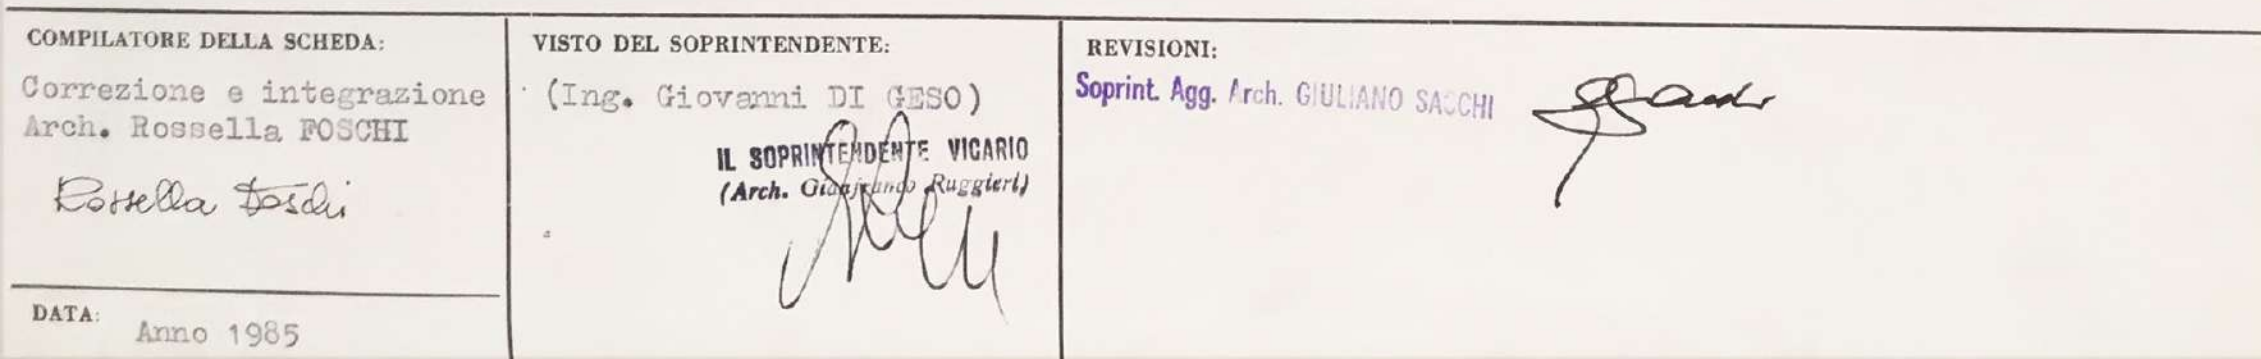 COMPILATORE DELLA SCHEDA:
Correzione e integrazione
Arch. Rossella FOSCHI
Rossella Foschi
DATA:
Anno 1985
VISTO DEL SOPRINTENDENTE:
(Ing. Giovanni DI GESO)
IL SOPRINTENDENTE VICARIO
(Arch. Gianfranco Ruggieri)
REVISIONI:
Soprint. Agg. Arch. GIULIANO SACCHI